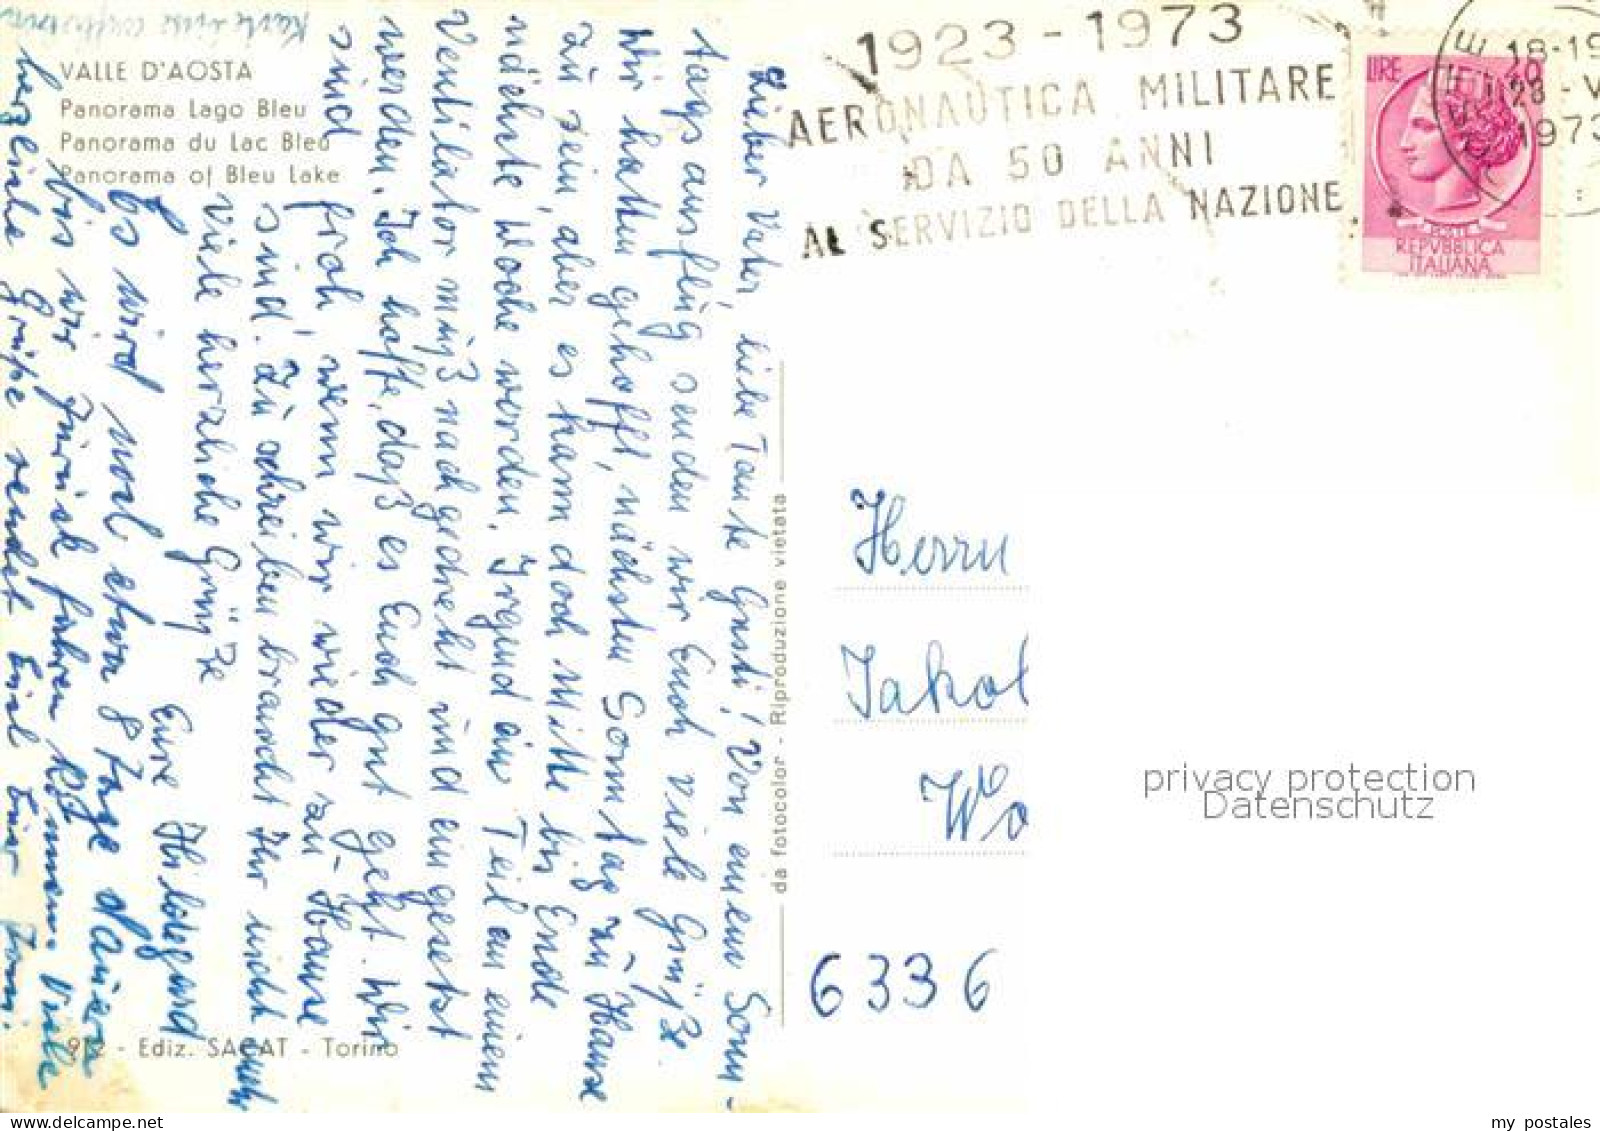 VALLE D'AOSTA
Panorama Lago Bleu
Panorama du Lac Bleu
Panorama of Bleu Lake
Lieber Vater, liebe Tante Gusti! Von einem Sonn-
tagsausflug senden wir Euch viele Grüße.
Wir hatten gehofft, nächsten Sonntag zu Hause
zu sein, aber es kann doch Mitte bis Ende
nächste Woche werden. Irgend ein Teil an einem
Ventilator muß nachgedreht und eingesetzt
werden. Ich hoffe, daß es Euch gut geht. Wir
sind froh, wenn wir wieder zu Hause
sind. Zu schreiben braucht Ihr nicht mehr
Viele herzliche Grüße
Eure Hildegard
Es wird noch etwa 8 Tage dauern
bis wir zurück fahren können. Viele
herzliche Grüße sendet Euch Euer
da fotocolor - Riproduzione vietata
- Ediz. SACAT - Torino
1923-1973
AERONAUTICA MILITARE
DA 50 ANNI
AL SERVIZIO DELLA NAZIONE
18-19
1973
LIRE
POSTE
REPVBBLICA
ITALIANA
Herrn
Jakob
Wo
6336
privacy protection
Datenschutz
my postales